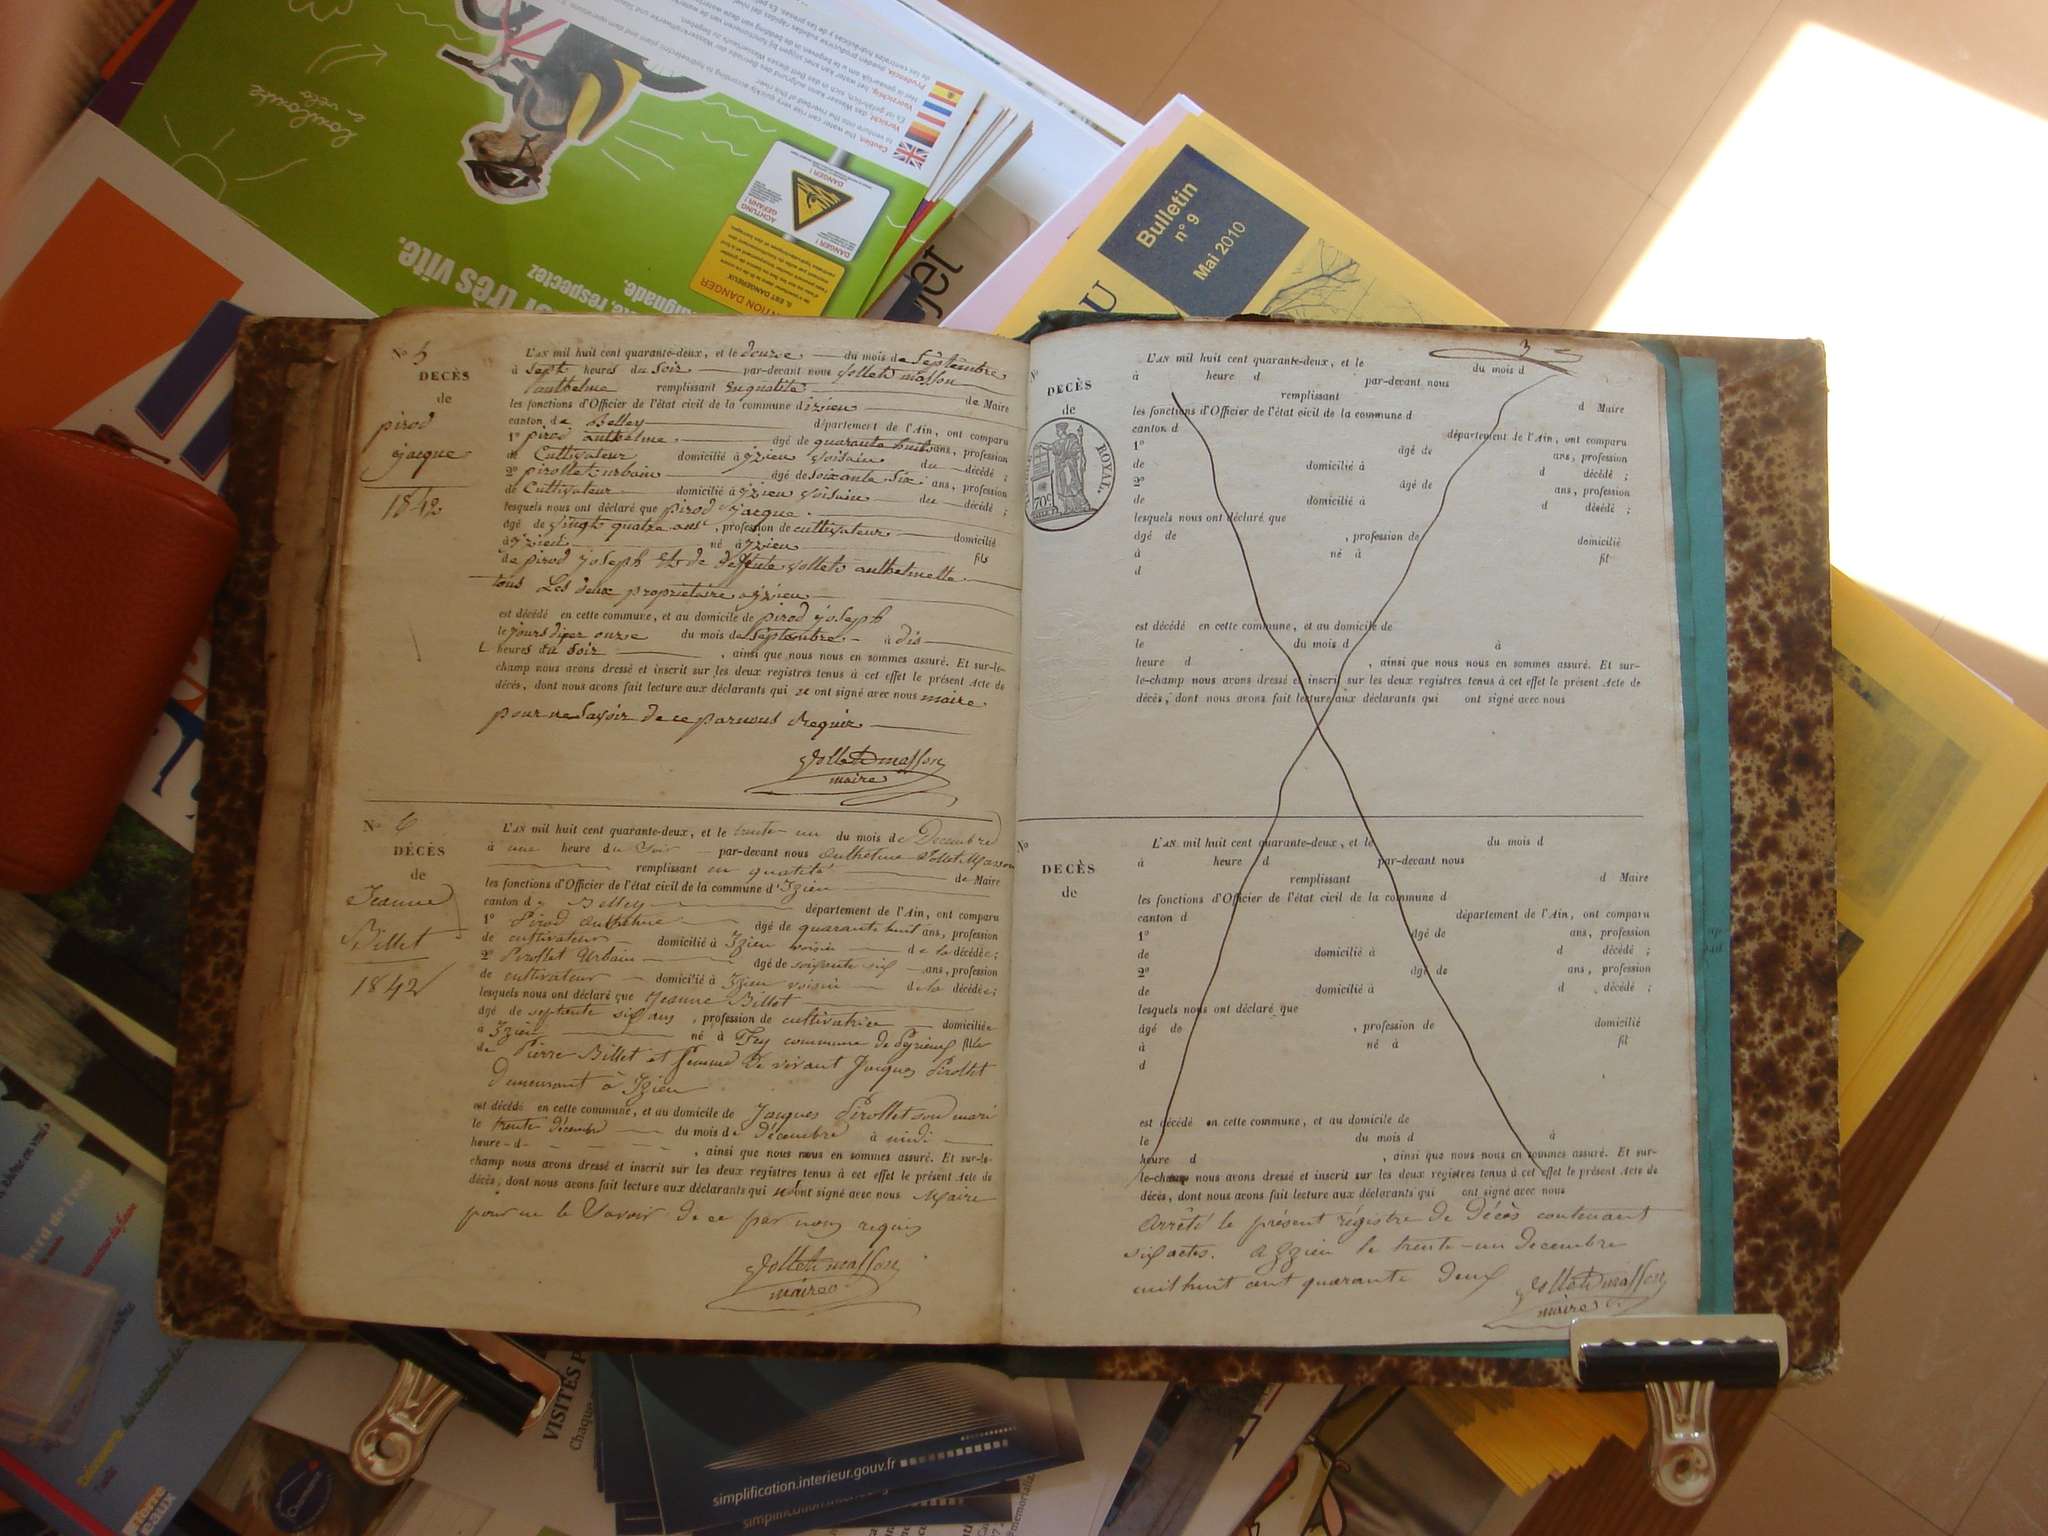 N° 5
DECÈS
de
pirod
jacque
1842
L'AN mil huit cent quarante-deux, et le douze du mois de Septembre
à sept heures du soir par-devant nous jollet masson
anthelme remplissant en qualité de Maire
les fonctions d'Officier de l'état civil de la commune d'izieu
canton de Belley département de l'Ain, ont comparu
1° pirod anthelme âgé de quarante huit ans, profession
de Cultivateur domicilié à yzieu voisin du décédé ;
2° pirollet urbain âgé de soixante six ans, profession
de Cultivateur domicilié à yzieu voisin du décédé ;
lesquels nous ont déclaré que pirod jacque
âgé de vingt quatre ans, profession de cultivateur domicilié
à yzieu né à yzieu fils
de pirod joseph et de deffunte jollet anthelmette
tous Les deux proprietaire a yzieu
est décédé en cette commune, et au domicile de pirod joseph
le jours d'iyer onze du mois de septembre à dis
heures du soir, ainsi que nous nous en sommes assuré. Et sur-le-
champ nous avons dressé et inscrit sur les deux registres tenus à cet effet le présent Acte de
décès, dont nous avons fait lecture aux déclarants qui ne ont signé avec nous maire
pour ne Savoir de ce par nous Requir
jollet masson
maire
N° 6
DÉCÈS
de
Jeanne
Billet
1842
L'AN mil huit cent quarante-deux, et le trente-un du mois de Décembre
à une heure du Soir par-devant nous Anthelme Jollet-Masson
remplissant en qualité de Maire
les fonctions d'Officier de l'état civil de la commune d'Izieu
canton de Belley département de l'Ain, ont comparu
1° Pirod Anthelme âgé de quarante huit ans, profession
de cultivateur domicilié à Izieu voisin de la décédée ;
2° Pirollet Urbain âgé de soixante six ans, profession
de cultivateur domicilié à Izieu voisin de la décédée ;
lesquels nous ont déclaré que Jeanne Billet
âgé de septente six ans, profession de cultivatrice domiciliée
à Izieu né à Fey commune de Peyrieux fille
de Pierre Billet et femme de vivant Jacques Pirollet
Demeurant à Izieu
est décédé en cette commune, et au domicile de Jacques Pirollet son mari
le trente décembre du mois de décembre à midi
heure d , ainsi que nous nous en sommes assuré. Et sur-le-
champ nous avons dressé et inscrit sur les deux registres tenus à cet effet le présent Acte de
décès, dont nous avons fait lecture aux déclarants qui n'ont signé avec nous Maire
pour ne le Savoir de ce par nous requis
jollet masson
maire
3
N°
DÉCÈS
de
ROYAL.
70c
L'AN mil huit cent quarante-deux, et le du mois d
à heure d par-devant nous
remplissant d Maire
les fonctions d'Officier de l'état civil de la commune d
canton d département de l'Ain, ont comparu
1° âgé de ans, profession
de domicilié à d décédé ;
2° âgé de ans, profession
de domicilié à d décédé ;
lesquels nous ont déclaré que
âgé de , profession de domicilié
à né à fil
d
est décédé en cette commune, et au domicile de
le du mois d à
heure d , ainsi que nous nous en sommes assuré. Et sur-
le-champ nous avons dressé et inscrit sur les deux registres tenus à cet effet le présent Acte de
décès, dont nous avons fait lecture aux déclarants qui ont signé avec nous
N°
DECÈS
de
L'AN mil huit cent quarante-deux, et le du mois d
à heure d par-devant nous
remplissant d Maire
les fonctions d'Officier de l'état civil de la commune d
canton d département de l'Ain, ont comparu
1° âgé de ans, profession
de domicilié à d décédé ;
2° âgé de ans, profession
de domicilié à d décédé ;
lesquels nous ont déclaré que
âgé de , profession de domicilié
à né à fil
d
est décédé en cette commune, et au domicile de
le du mois d à
heure d , ainsi que nous nous en sommes assuré. Et sur-
le-champ nous avons dressé et inscrit sur les deux registres tenus à cet effet le présent Acte de
décès, dont nous avons fait lecture aux déclarants qui ont signé avec nous
Arrêté le présent régistre de Décès contenant
six actes. A Izieu le trente-un Decembre
mil huit cent quarante Deux
jollet masson
maire
Bulletin
n° 9
Mai 2010
Toulouse
à vélo
très vite.
respectez
ATTENTION DANGER
IL EST DANGEREUX
ACHTUNG
GEFAHR !
DANGER !
Prudencia,
Voorzichtig,
Vorsicht,
Caution,
jet
VISITES
Chaque
simplification.interieur.gouv.fr